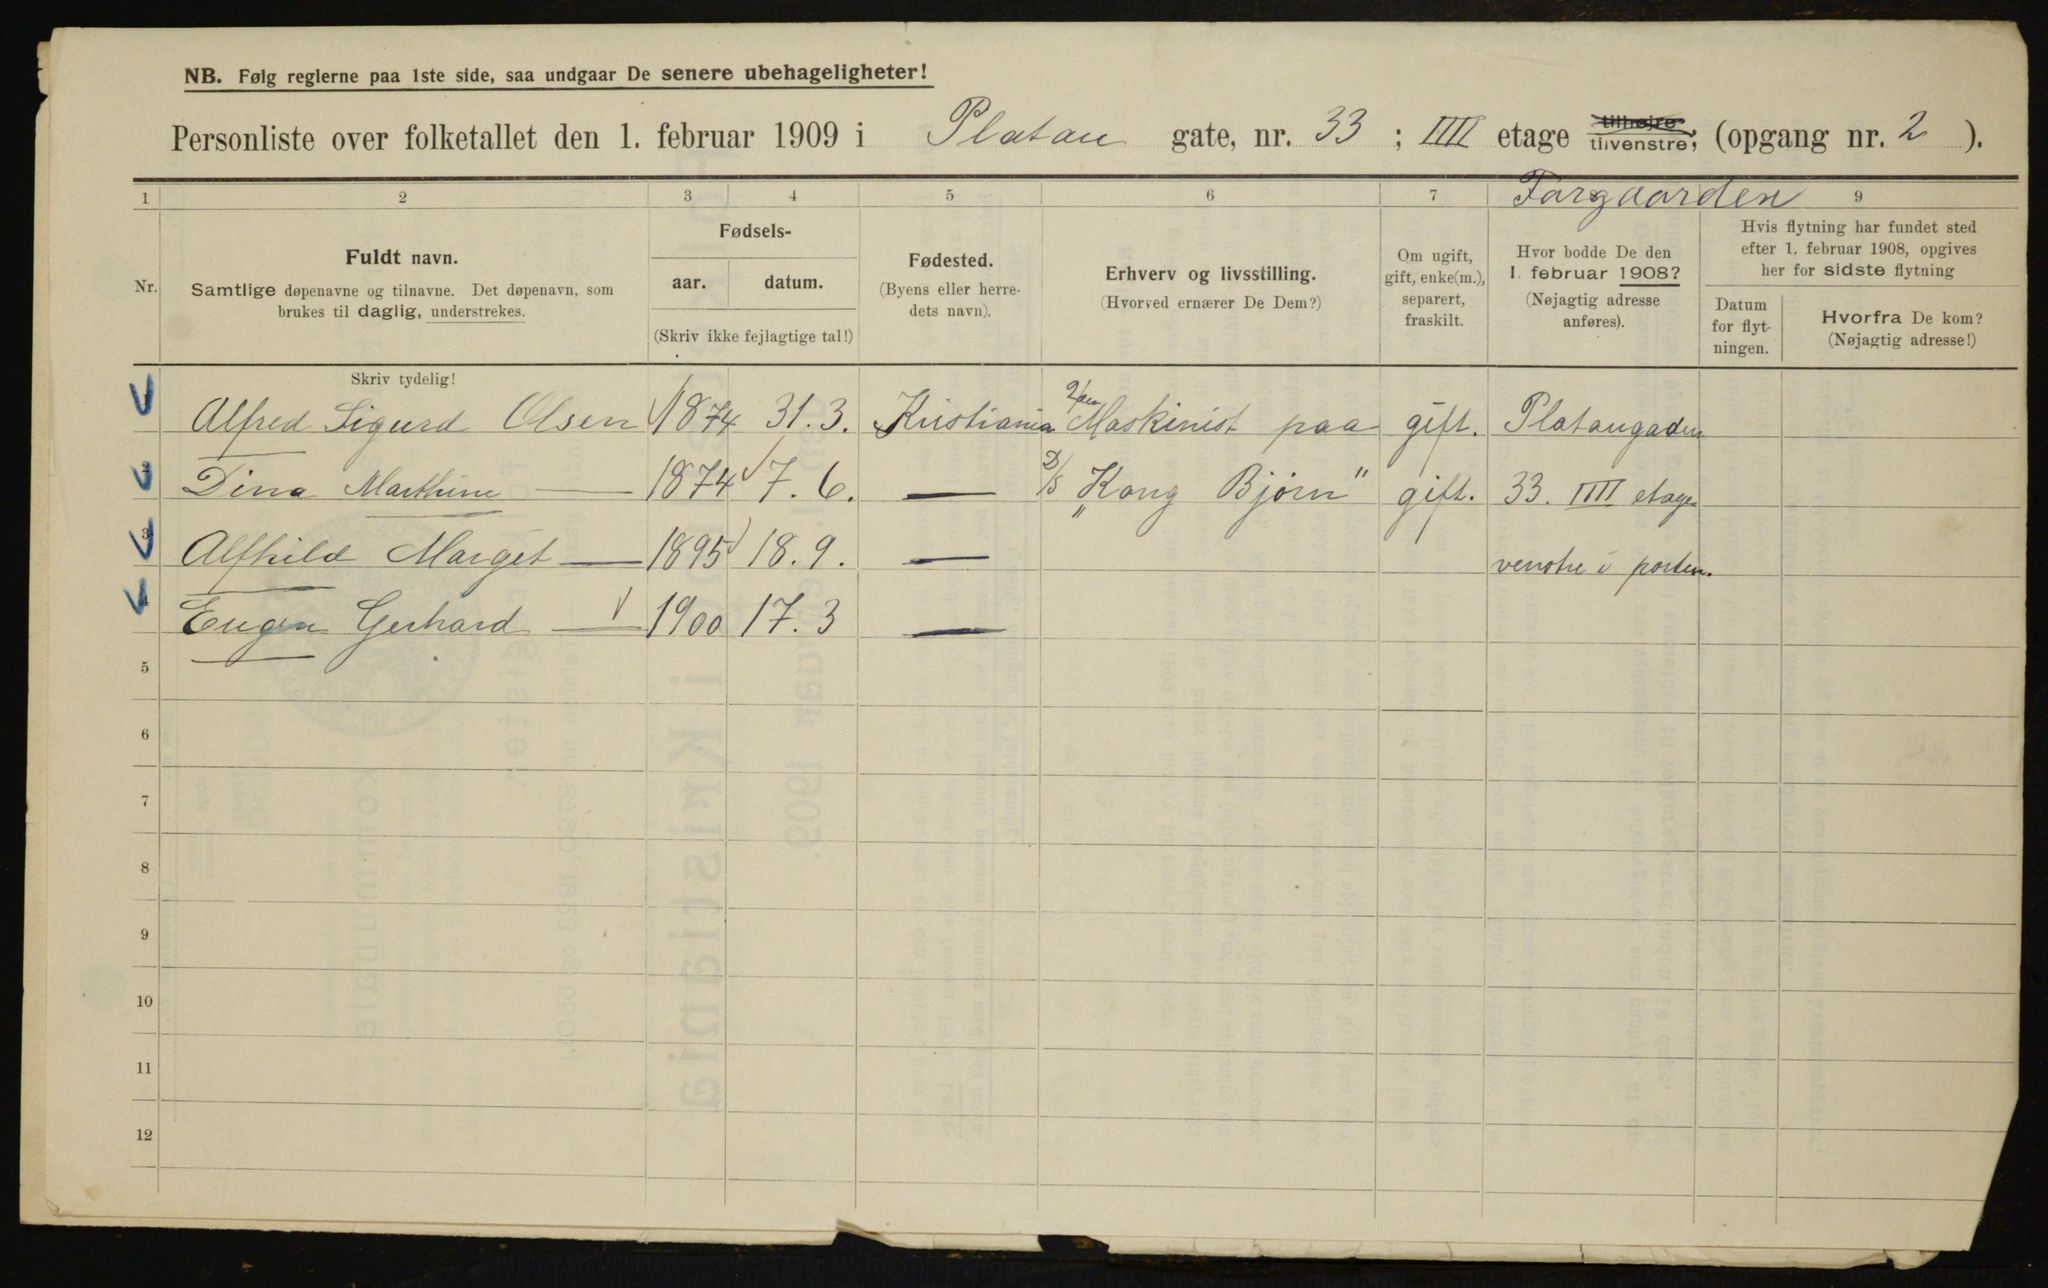 NB. Følg reglerne paa 1ste side, saa undgaar De senere ubehageligheter!
Personliste over folketallet den 1. februar 1909 i Platou gate, nr. 33 ; IIII etage tilhøjre tilvenstre; (opgang nr. 2 ).
Forgaarden
1 2 3 4 5 6 7 9
Nr.
Fuldt navn.
Samtlige døpenavne og tilnavne. Det døpenavn, som
brukes til daglig, understrekes.
Skriv tydelig!
Fødsels-
aar. datum.
(Skriv ikke fejlagtige tal!)
Fødested.
(Byens eller herre-
dets navn).
Erhverv og livsstilling.
(Hvorved ernærer De Dem?)
Om ugift,
gift, enke(m.),
separert,
fraskilt.
Hvor bodde De den
1. februar 1908?
(Nøjagtig adresse
anføres).
Hvis flytning har fundet sted
efter 1. februar 1908, opgives
her for sidste flytning
Datum
for flyt-
ningen.
Hvorfra De kom?
(Nøjagtig adresse!)
1 Alfred Sigurd Olsen 1874 31.3. Kristiania 2den Maskinist paa gift. Platougaden
2 Dina Marthine — 1874 7.6. — D/S "Kong Bjørn" gift. 33. IIII etage
3 Alfhild Marget — 1895 18.9. — venstre i porten.
4 Eugen Gerhard — 1900 17.3 —
5
6
7
8
9
10
11
12